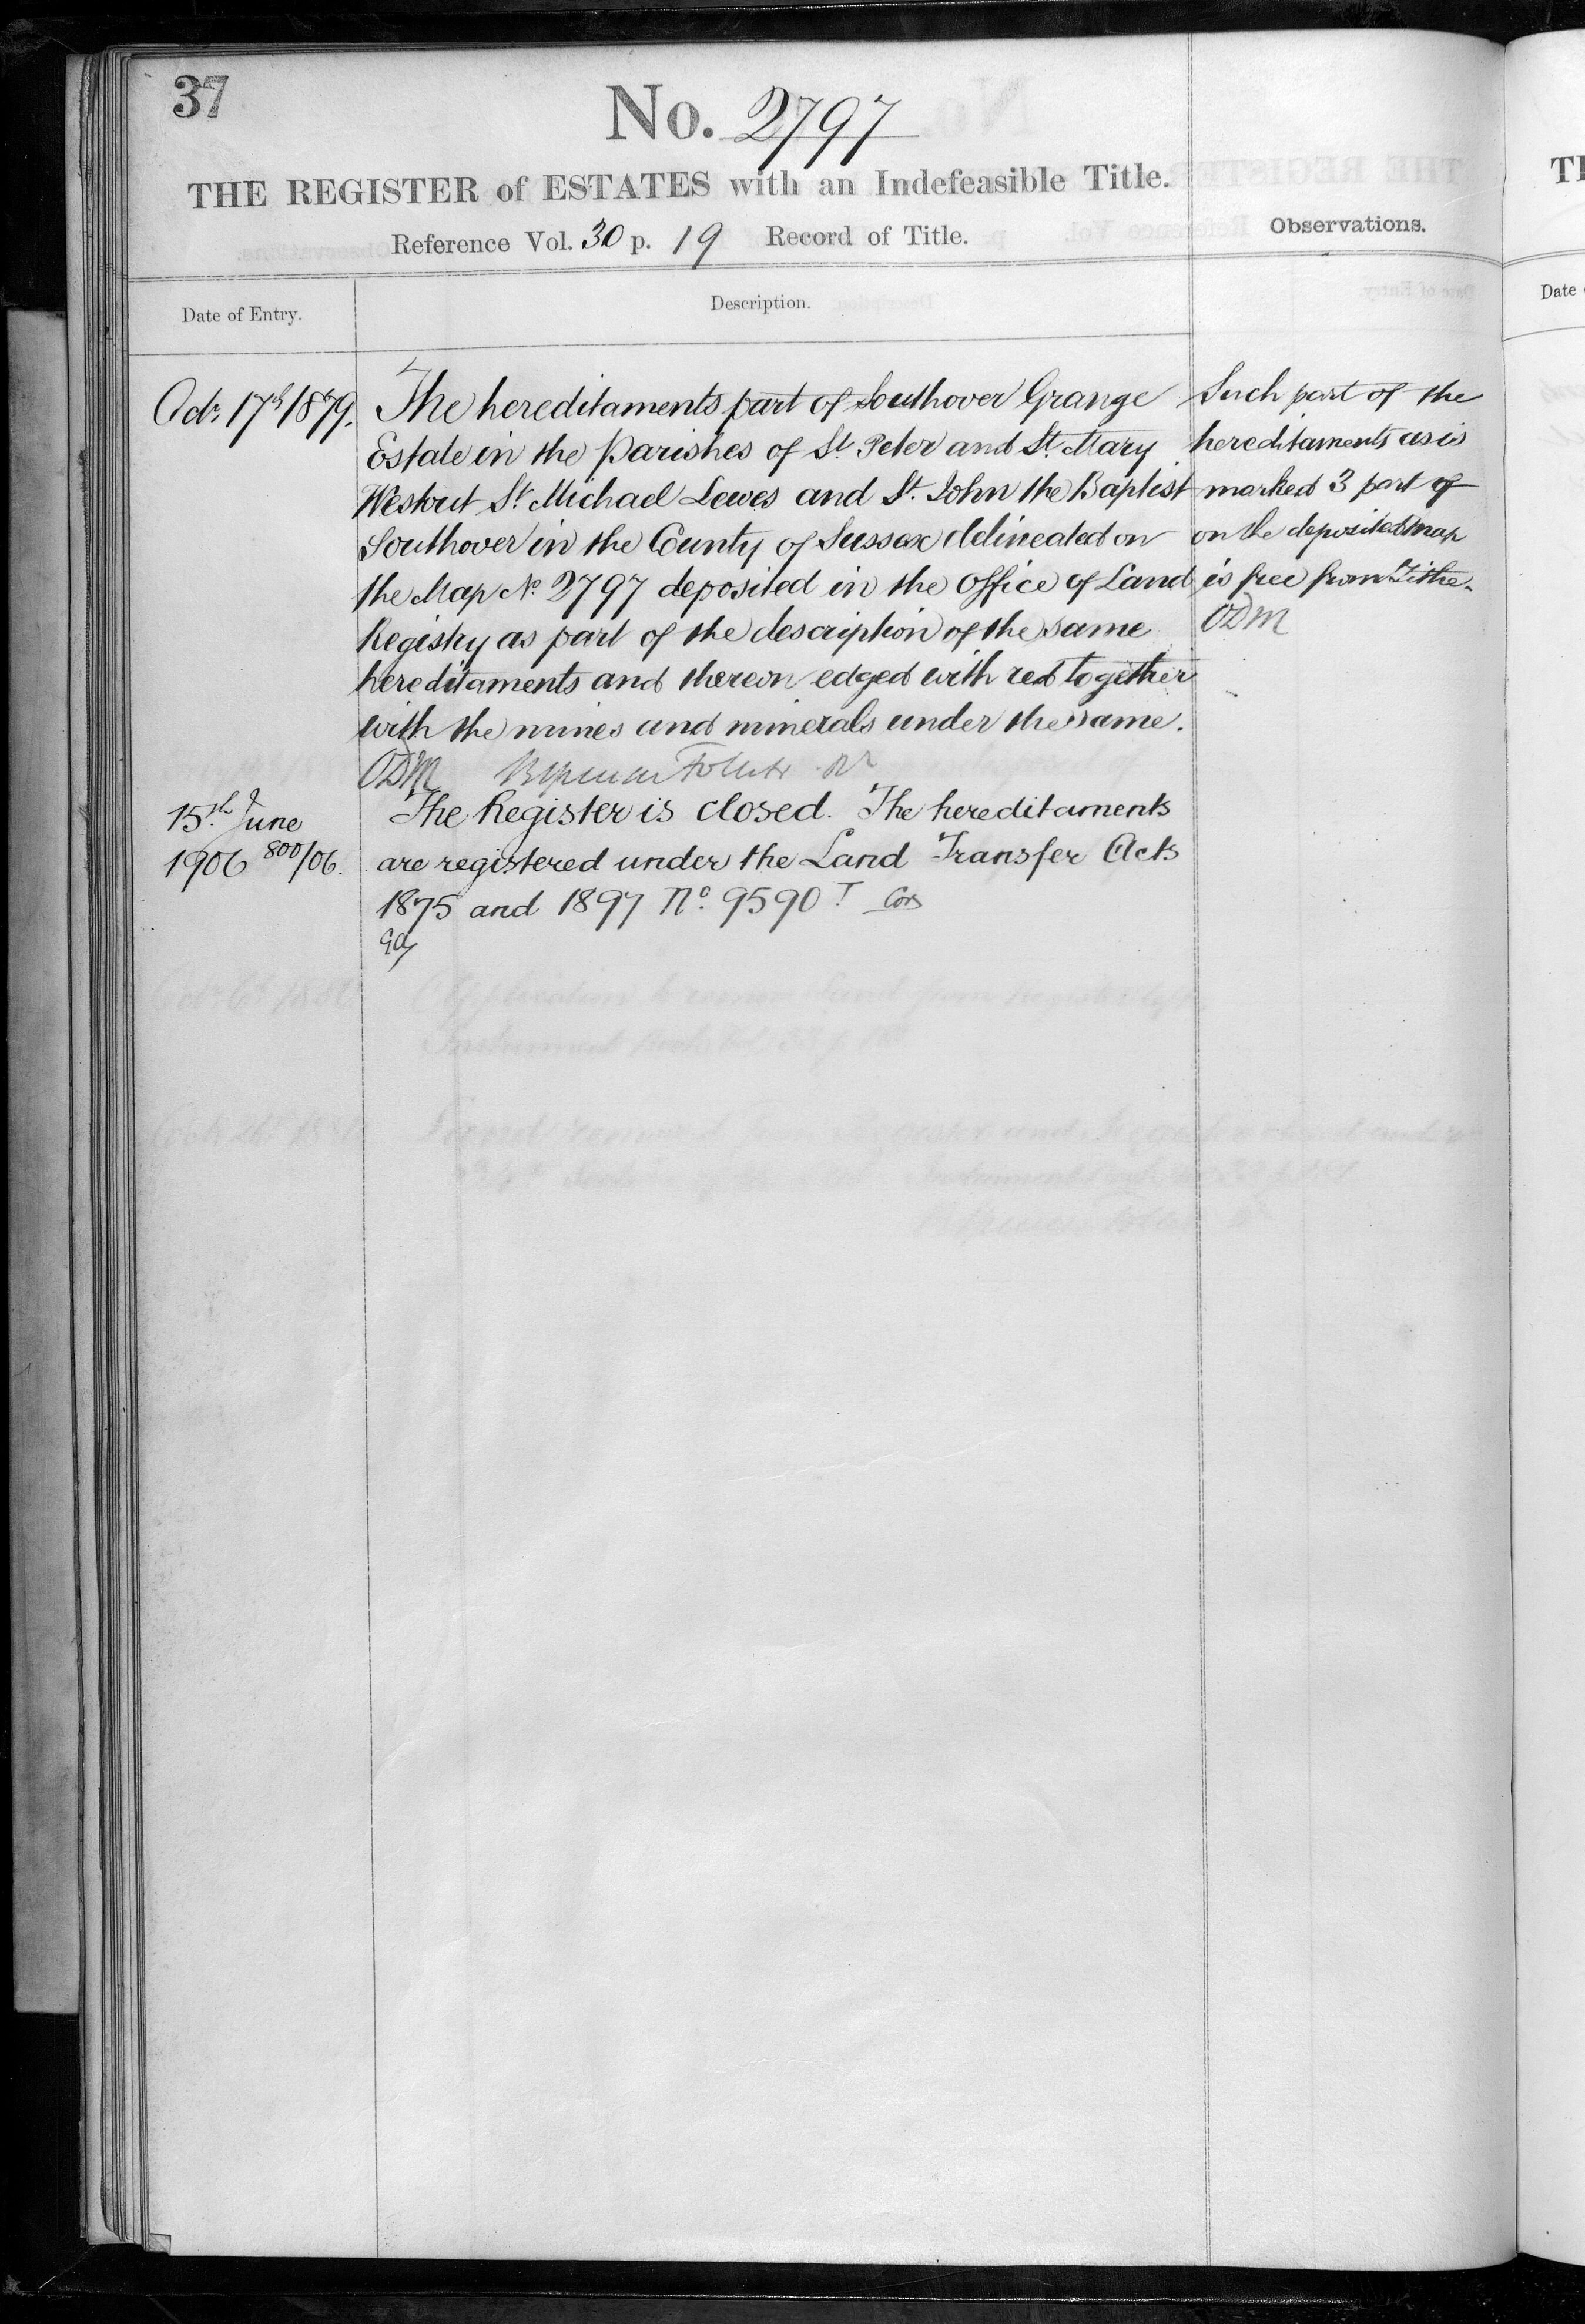 37
No. 2797
THE REGISTER of ESTATES with an Indefeasible Title.
Reference Vol. 30 p. 19 Record of Title.
Observations.
Date of Entry.
Description.
Octr. 17th 1879.
The hereditaments part of Southover Grange
Estate in the Parishes of St. Peter and St. Mary
Westout St. Michael Lewes and St. John the Baptist
Southover in the County of Sussex delineated on
the Map No. 2797 deposited in the Office of Land
Registry as part of the description of the same
hereditaments and thereon edged with red together
with the mines and minerals under the same.
ODM
Such part of the
hereditaments as is
marked 3 part of
on the deposited map
is free from Tithe.
ODM
15th June
1906 800/06.
The Register is closed. The hereditaments
are registered under the Land Transfer Acts
1875 and 1897 No. 9590 T
TH
Date